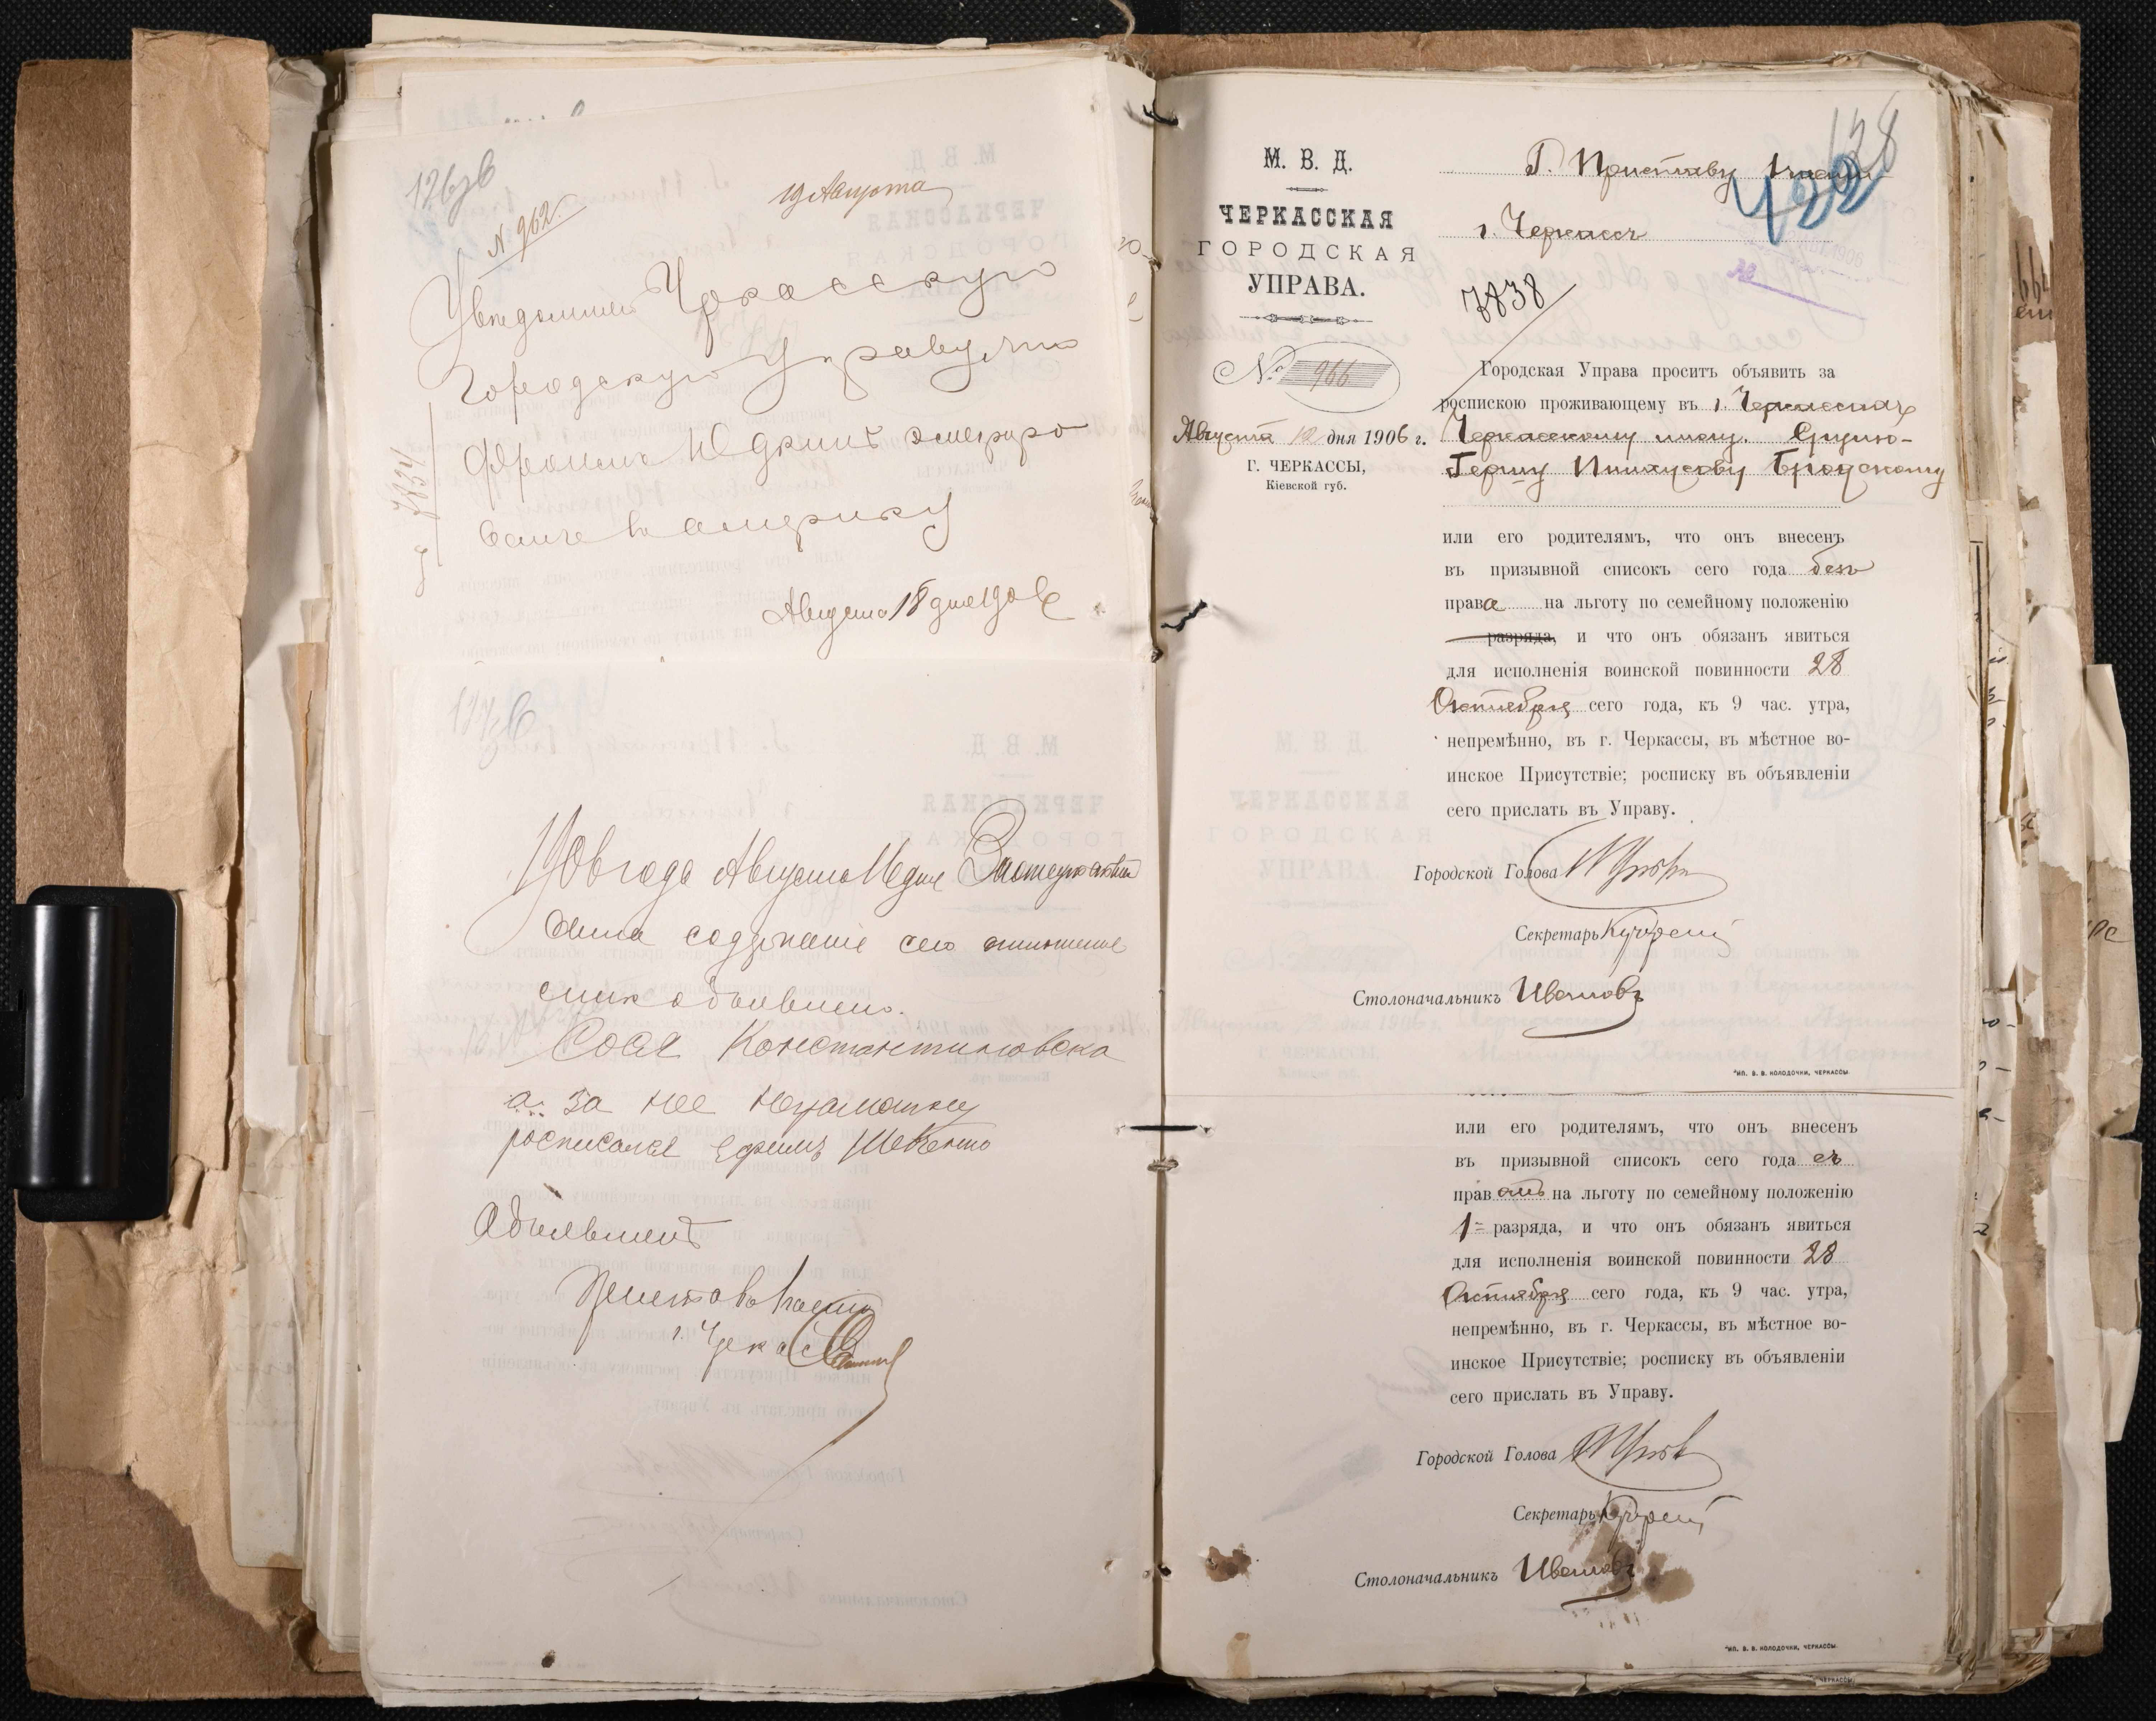 126 об
N. 962.
19 Августа
Уведомить Черкасскую
Городскую Управу, что
Юдкинъ эмигриро
валъ в америку
Августа 18 дня 1906
7834
127 об
1906 года Августа 16 дня
содержаніе сего отношенія
объявлено.
Константиновска
а за нее неграмотну
росписался Ефимъ
Объявленъ
Приставъ 1 части
г. Черкассъ
М. В. Д.
ЧЕРКАССКАЯ
ГОРОДСКАЯ
УПРАВА.
№ 966
Августа 12 дня 1906 г.
Г. ЧЕРКАССЫ,
Кіевской губ.
128
Г. Приставу 1 части
г. Черкассъ
7838
Городская Управа проситъ объявить за
роспискою проживающему въ г. Черкассахъ
Черкасскому мѣщ. Срулю-
Гершу Пинхусову Бродскому
или его родителямъ, что онъ внесенъ
въ призывной списокъ сего года безъ
права на льготу по семейному положенію
разряда, и что онъ обязанъ явиться
для исполненія воинской повинности 28
Октября сего года, къ 9 час. утра,
непремѣнно, въ г. Черкассы, въ мѣстное во-
инское Присутствіе; росписку въ объявленіи
сего прислать въ Управу.
Городской Голова
Секретарь
Столоначальникъ Ивановъ
Тип. В. В. КОЛОДОЧКИ, ЧЕРКАССЫ
или его родителямъ, что онъ внесенъ
въ призывной списокъ сего года съ
правомъ на льготу по семейному положенію
1 разряда, и что онъ обязанъ явиться
для исполненія воинской повинности 28
Октября сего года, къ 9 час. утра,
непремѣнно, въ г. Черкассы, въ мѣстное во-
инское Присутствіе; росписку въ объявленіи
сего прислать въ Управу.
Городской Голова
Секретарь
Столоначальникъ Ивановъ
Тип. В. В. КОЛОДОЧКИ, ЧЕРКАССЫ.
ЧЕРКАССЫ